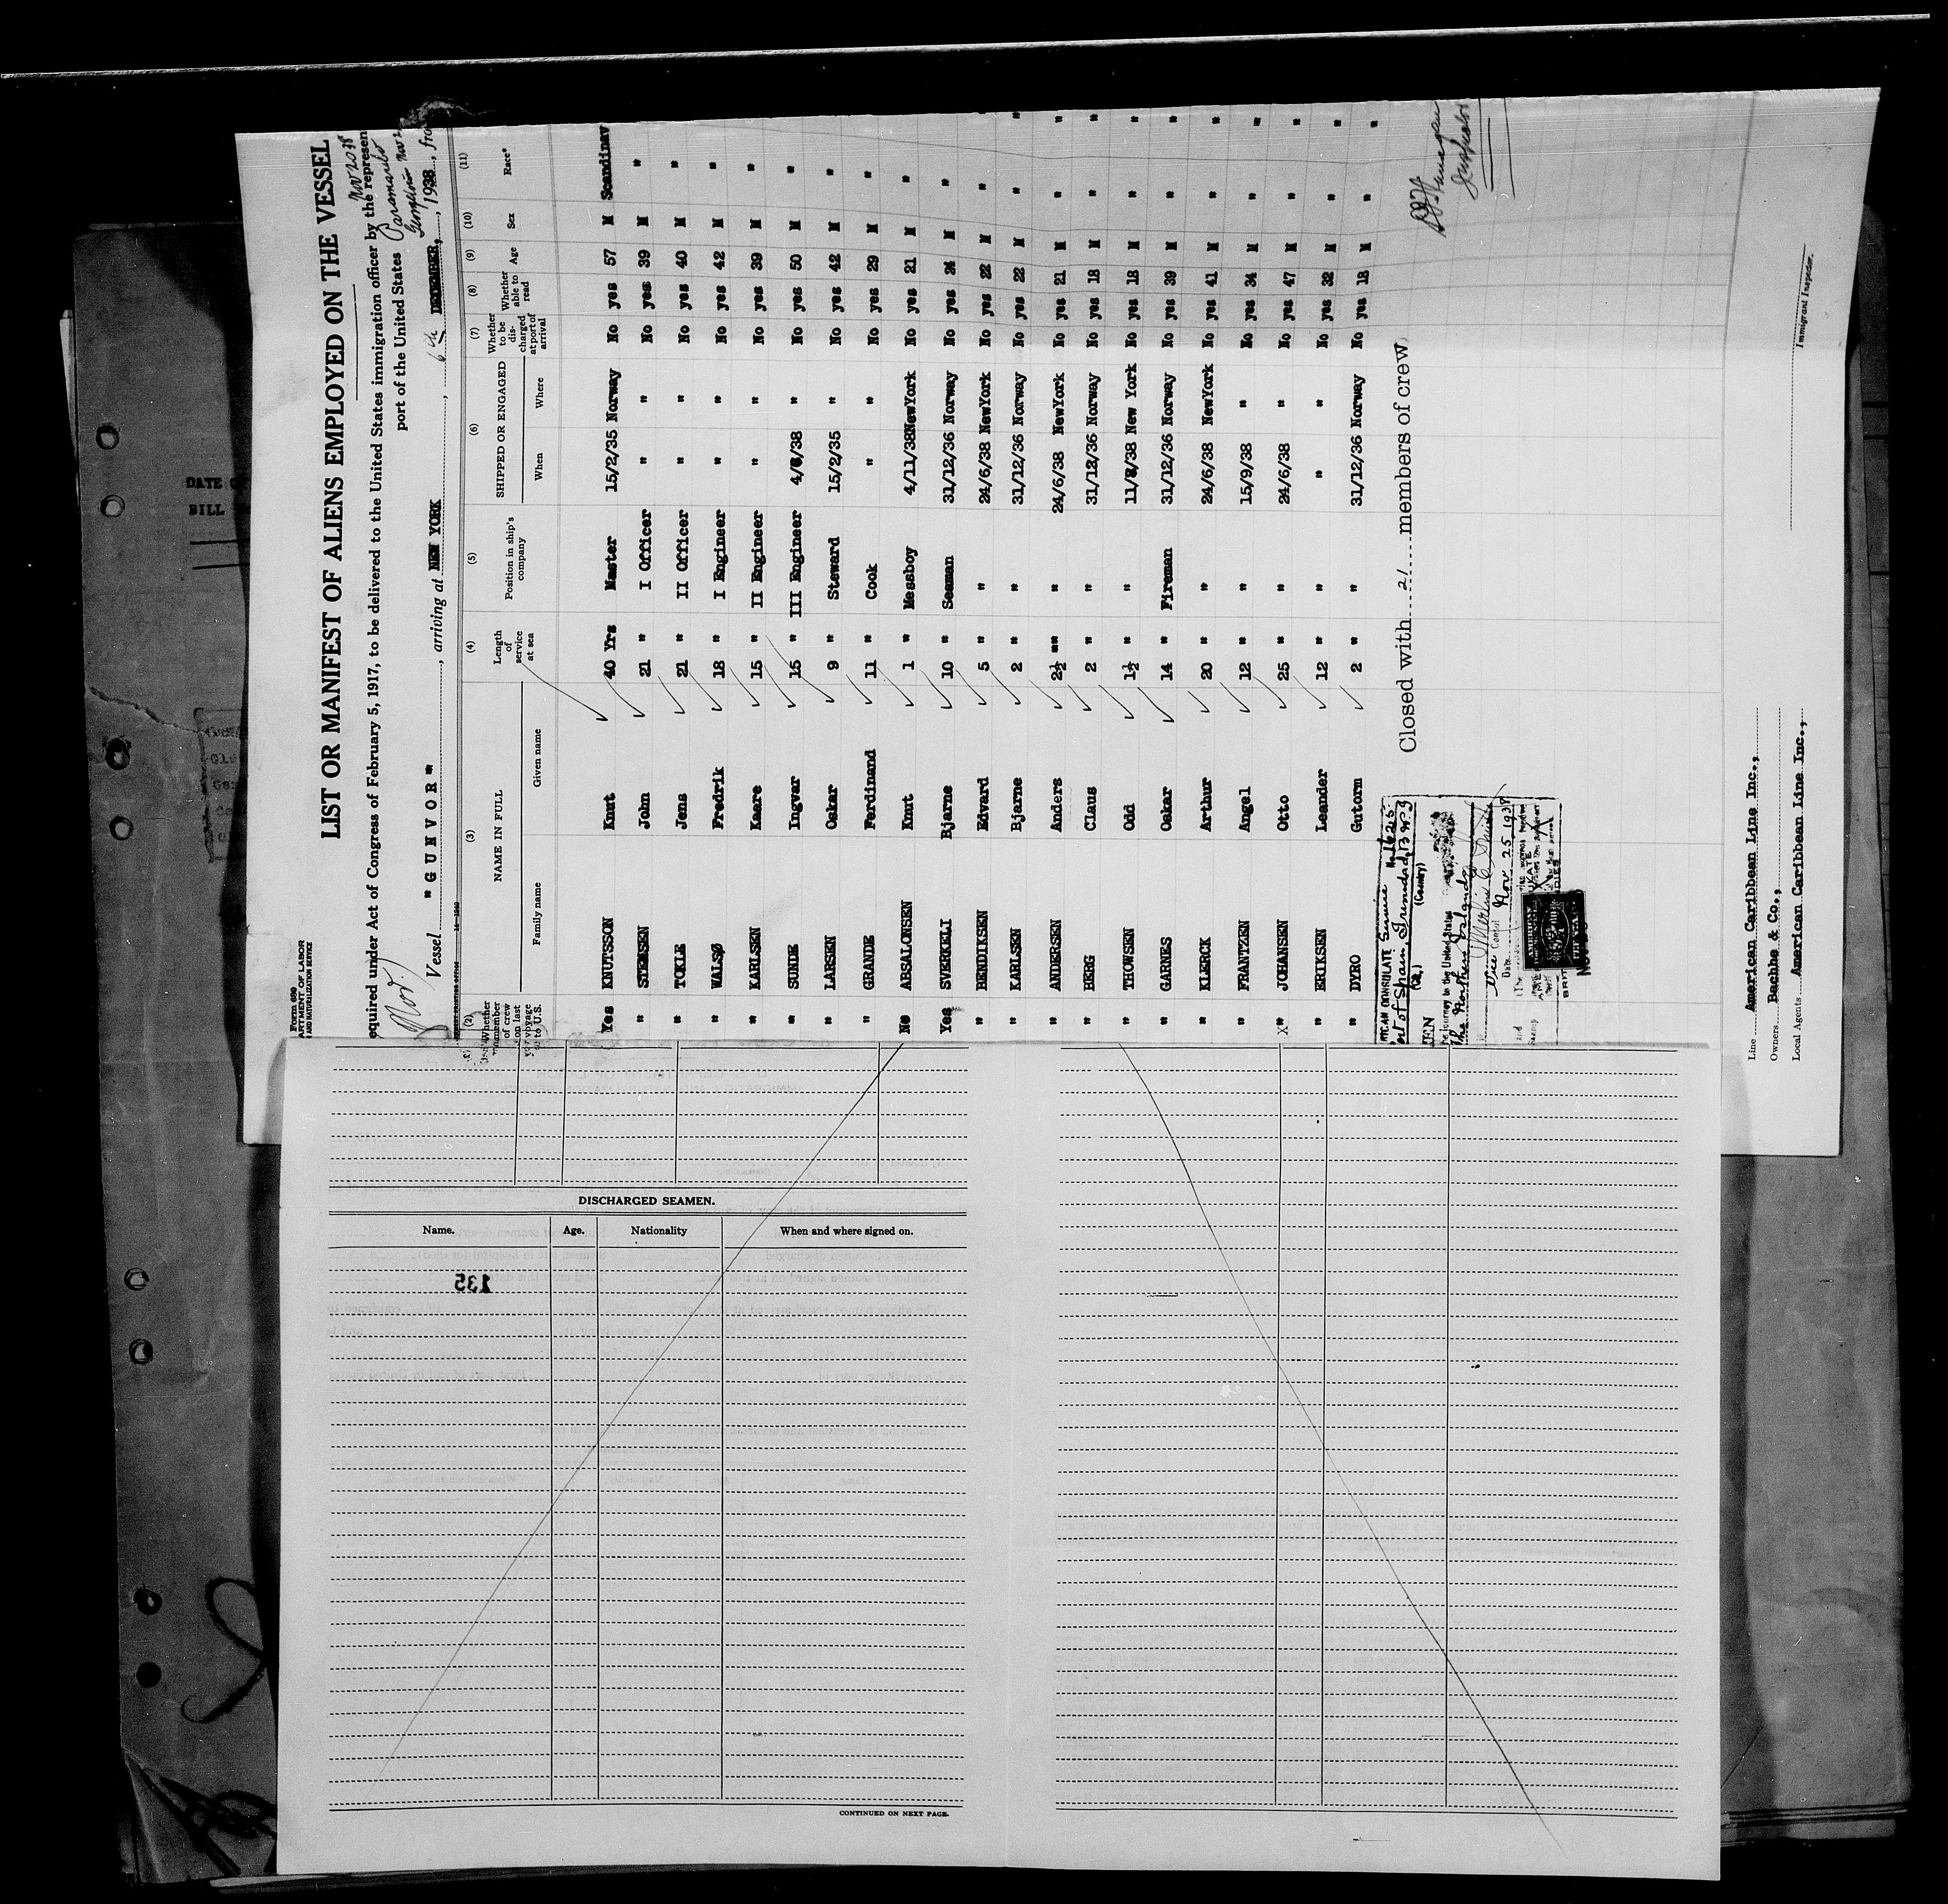 Form 689
ARTMENT OF LABOR
AND NATURALIZATION SERVICE
LIST OR MANIFEST OF ALIENS EMPLOYED ON THE VESSEL
equired under Act of Congress of February 5, 1917, to be delivered to the United States immigration officer by the represen
port of the United States
Nov 20 38
Paramaribo
Georgetown Nov 2
Vessel "GUNVOR", arriving at NEW YORK, 6th DECEMBER, 1938, fro
(2) (3) (4) (5) (6) (7) (8) (9) (10) (11)
Whether member of crew on last voyage to U.S. NAME IN FULL Family name Given name Length of service at sea Position in ship's company SHIPPED OR ENGAGED When Where Whether to be discharged at port of arrival Whether able to read Age Sex Race*
Yes KNUTSSON Knut 40 Yrs Master 15/2/35 Norway No yes 57 M Scandinav
" STENSEN John 21 " I Officer " " No yes 39 M "
" TOKLE Jens 21 " II Officer " " No yes 40 M "
" WALSØ Fredrik 18 " I Engineer " " No yes 42 M "
" KARLSEN Kaare 15 " II Engineer " " No yes 39 M "
" SUNDE Ingvar 15 " III Engineer 4/6/38 " No yes 50 M "
" LARSEN Oskar 9 " Steward 15/2/35 " No yes 42 M "
" GRANDE Ferdinand 11 " Cook " " No yes 29 M "
No ABSALONSEN Knut 1 " Messboy 4/11/38 NewYork No yes 21 M "
Yes SVERKELI Bjarne 10 " Seaman 31/12/36 Norway No yes 24 M "
" BENDIKSEN Edvard 5 " " 24/6/38 NewYork No yes 22 M "
" KARLSEN Bjarne 2 " " 31/12/36 Norway No yes 22 M "
" ANDERSEN Anders 2½ "" " 24/6/38 NewYork No yes 21 M "
" BERG Claus 2 " " 31/12/36 Norway No yes 18 M "
" THOWSEN Odd 1½ " " 11/8/38 New York No yes 18 M "
" GARNES Oskar 14 " Fireman 31/12/36 Norway No yes 39 M "
" KLERCK Arthur 20 " " 24/6/38 NewYork No yes 41 M "
" FRANTZEN Angel 12 " " 15/9/38 " No yes 34 M "
X" JOHANSEN Otto 25 " " 24/6/38 " No yes 47 M "
" ERIKSEN Leander 12 " " " " No yes 32 M "
" DYRO Gutorm 2 " " 31/12/36 Norway No yes 18 M "
Closed with 21 members of crew
RICAN CONSULATE Service No. 1625
ort of Spain, Trinidad, B.W.I.
(Country)
e journey to the United States
Vice Consul
Date Nov 25 1938
Inspector
Immigrant Inspector.
Line American Caribbean Line Inc.,
Owners Bachke & Co.,
Local Agents American Caribbean Line Inc.,
DATE O
BILL
DISCHARGED SEAMEN.
Name. Age. Nationality When and where signed on.
135
CONTINUED ON NEXT PAGE.